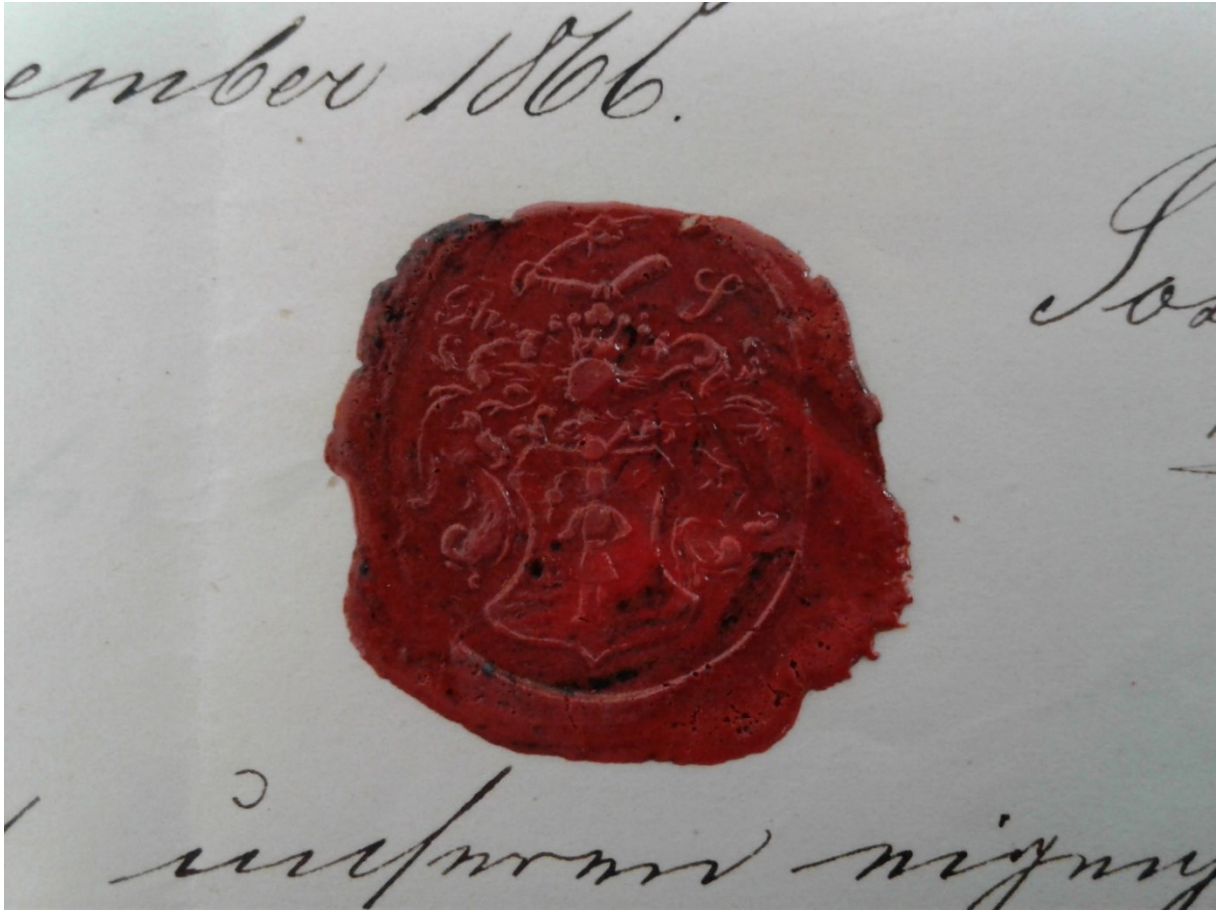 ember 1866.
S.
unseren eigen